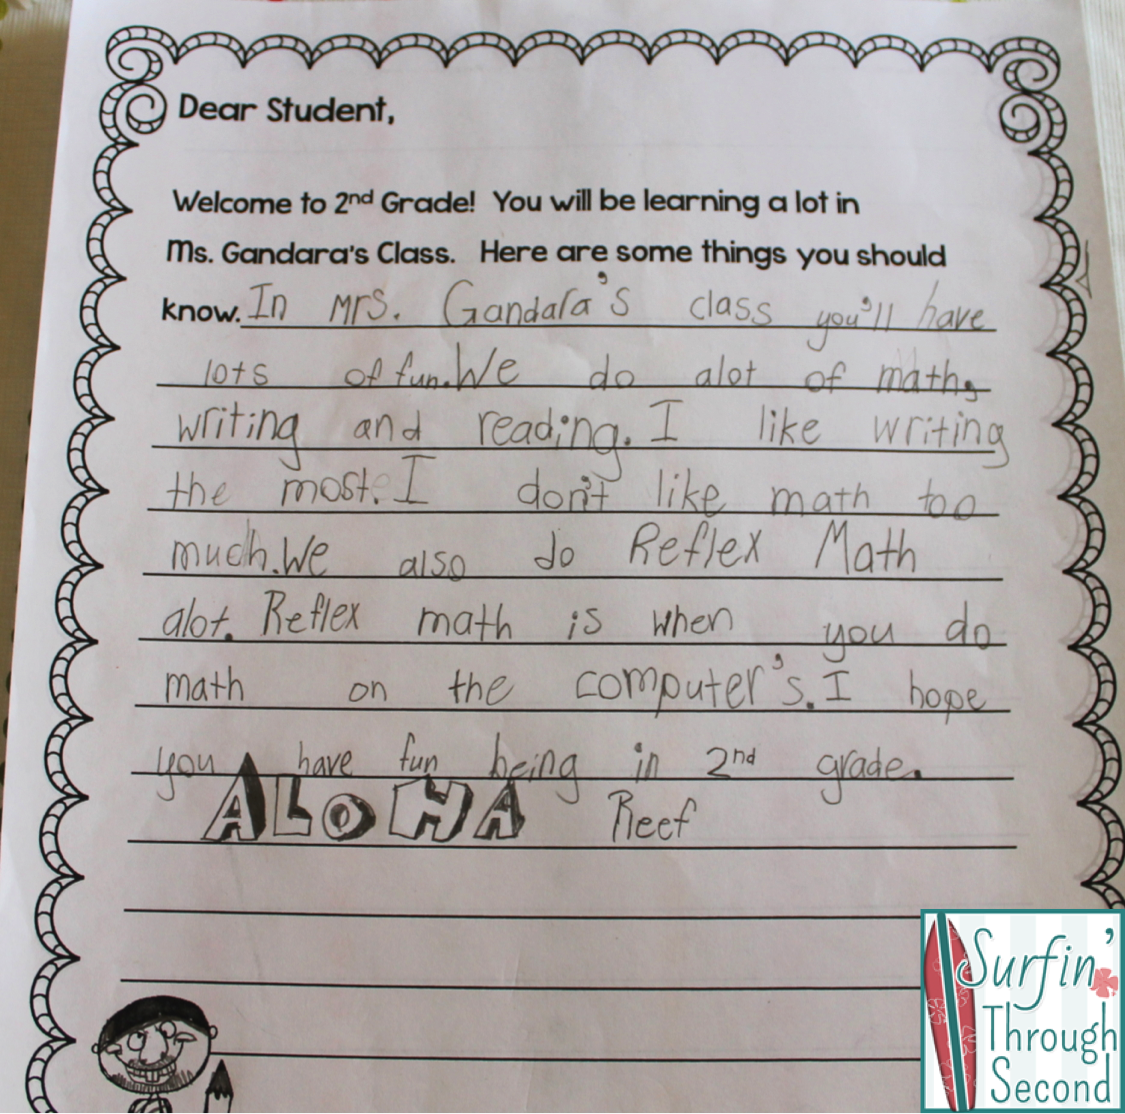 Dear Student,
Welcome to 2nd Grade! You will be learning a lot in
Ms. Gandara's Class. Here are some things you should
know. In Mrs. Gandara's class you'll have
lots of fun. We do alot of math,
writing and reading. I like writing
the most. I don't like math too
much. We also do Reflex Math
alot. Reflex math is when you do
math on the computer's. I hope
you have fun being in 2nd grade.
ALOHA Reef
Surfin'
Through
Second